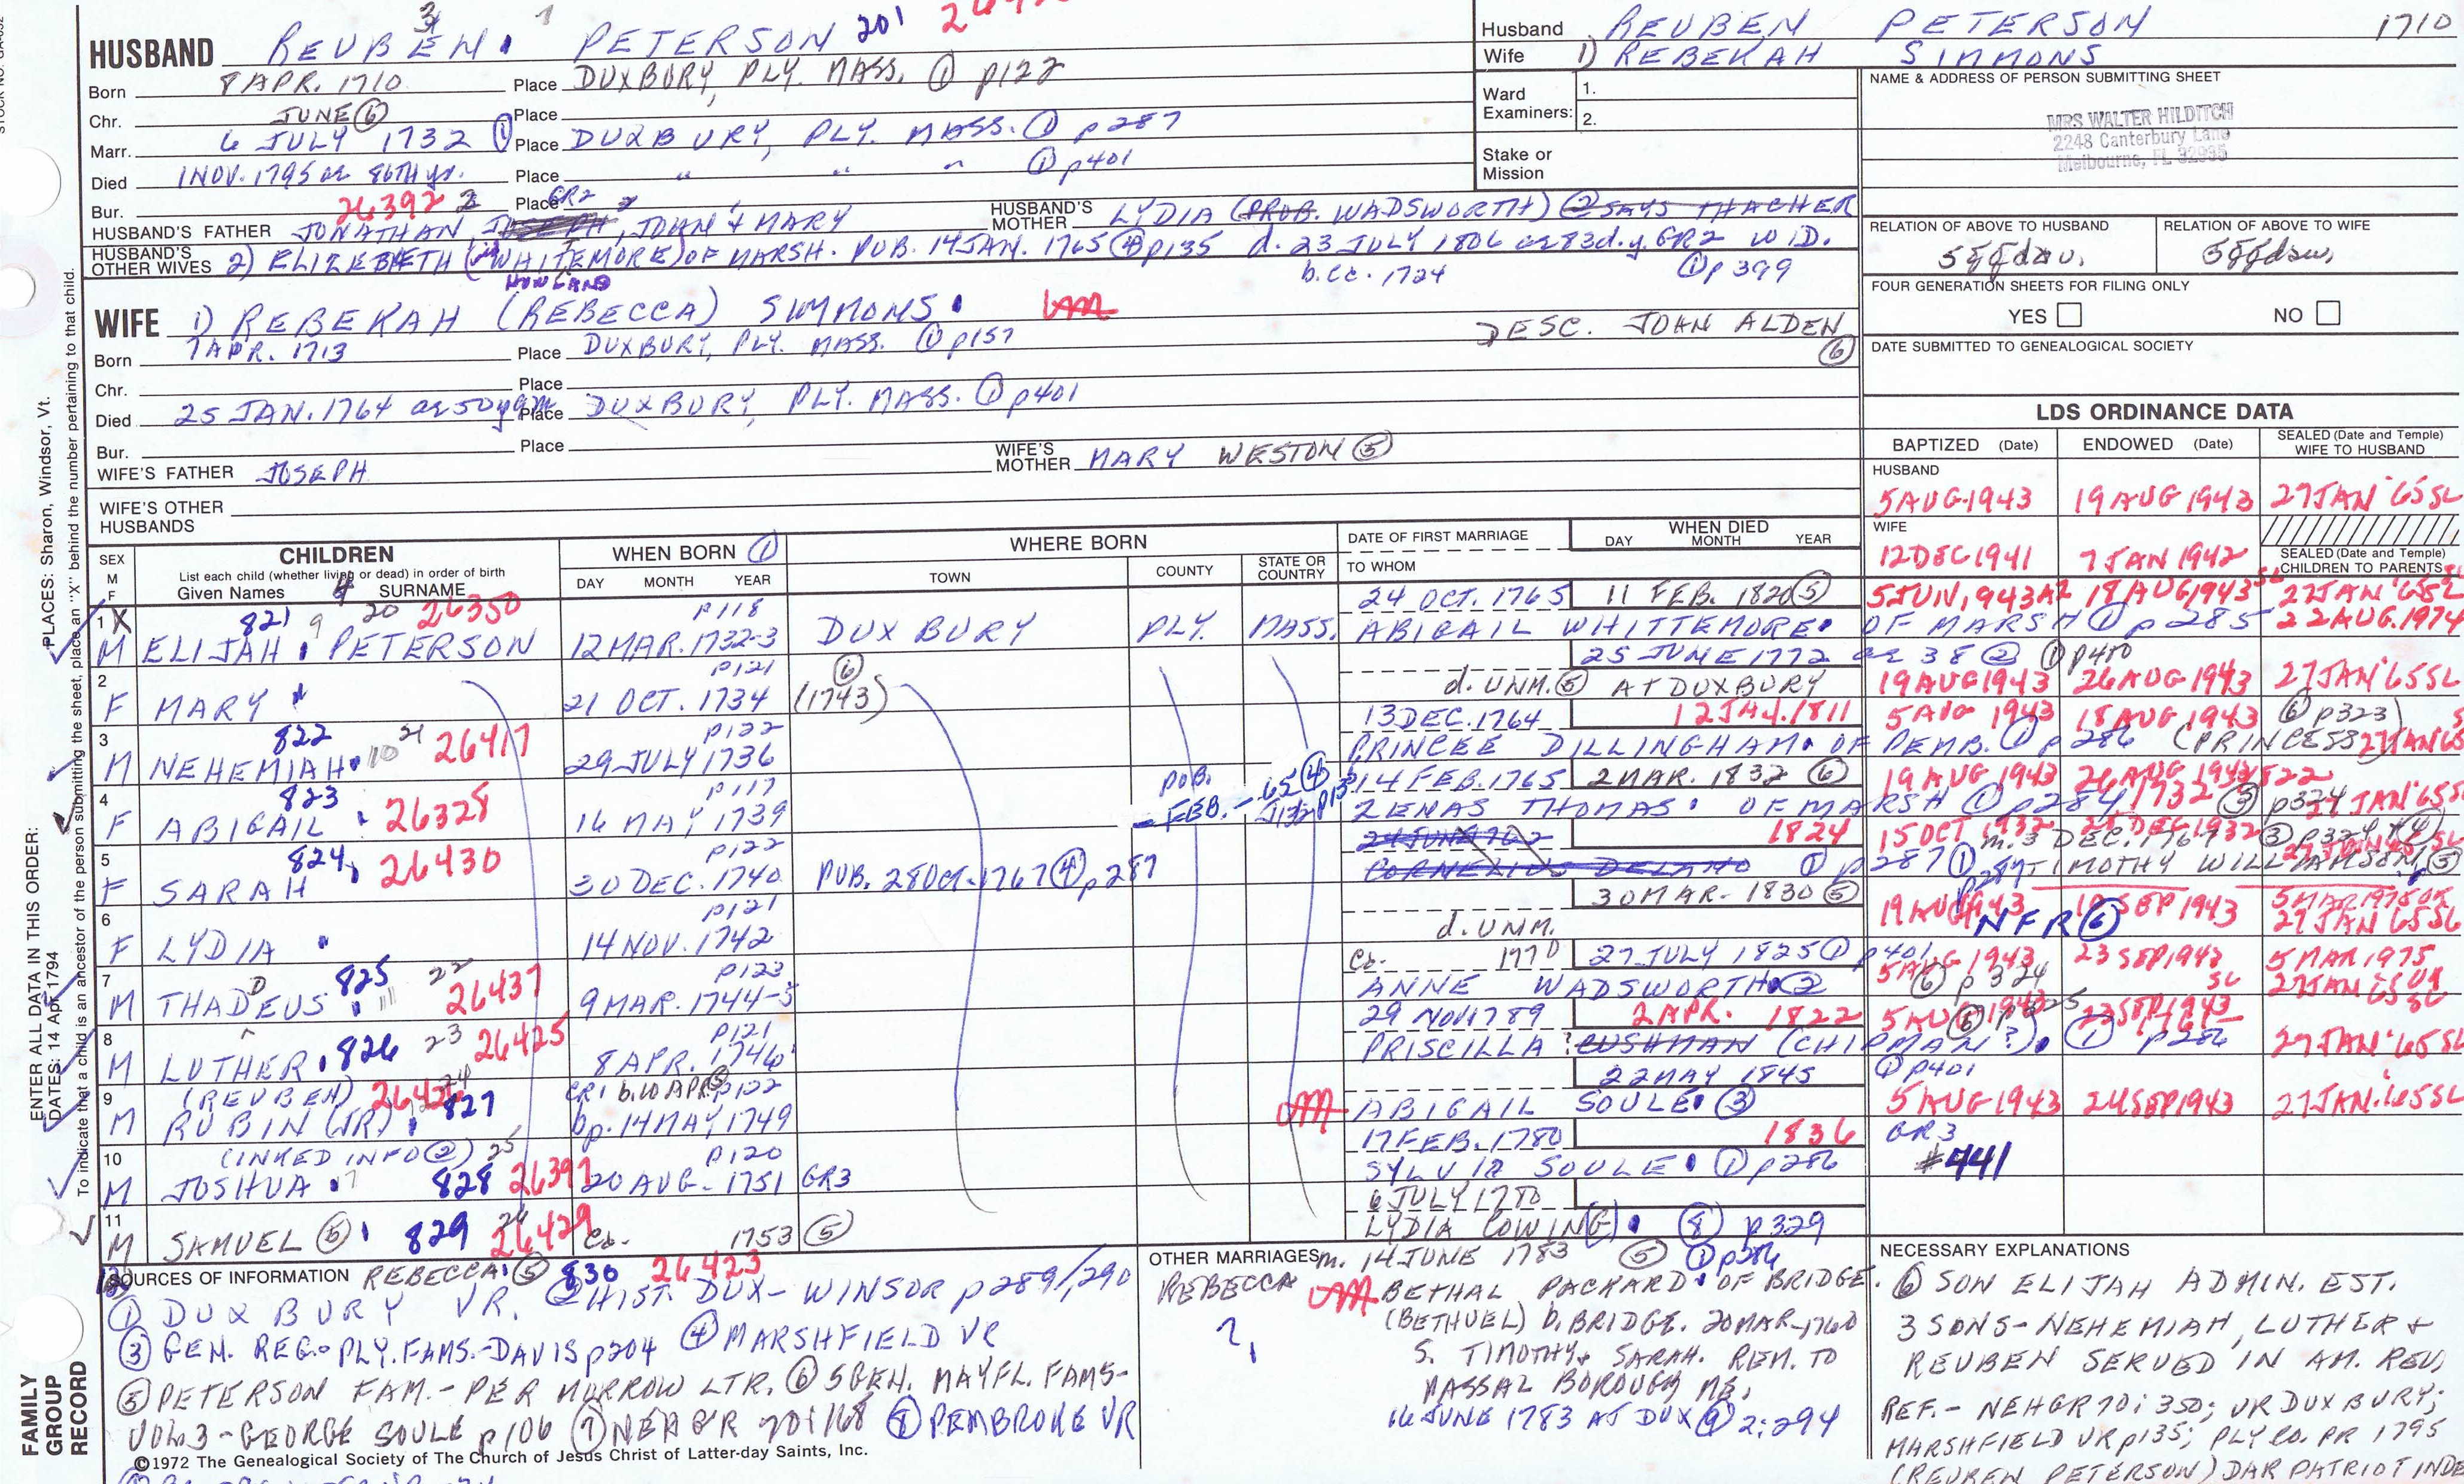 HUSBAND REUBEN PETERSON 201
Born 8 APR. 1710 Place DUXBURY, PLY. MASS. ① p122
Chr. JUNE ⑥ Place
Marr. 6 JULY 1732 ① Place DUXBURY, PLY. MASS. ① p287
Died 1 NOV. 1795 ae 86TH yr. Place " " " ① p401
Bur. 26392 Place GR2
HUSBAND'S FATHER JONATHAN, JOHN & MARY HUSBAND'S MOTHER LYDIA (PROB. WADSWORTH) ② SAYS THACHER
HUSBAND'S OTHER WIVES 2) ELIZEBETH (WHITEMORE) OF MARSH. PUB. 14 JAN. 1765 ④ p135 d. 23 JULY 1806 ae 83d.y GR2 WID.
HOWLAND b. cc. 1724 ① p399
WIFE 1) REBEKAH (REBECCA) SIMMONS
DESC. JOHN ALDEN ⑥
Born 7 APR. 1713 Place DUXBURY, PLY. MASS. ① p157
Chr. Place
Died 25 JAN. 1764 ae 50y 9m Place DUXBURY, PLY. MASS. ① p401
Bur. Place
WIFE'S FATHER JOSEPH WIFE'S MOTHER MARY WESTON ⑤
WIFE'S OTHER HUSBANDS
Husband REUBEN PETERSON 1710
Wife 1) REBEKAH SIMMONS
Ward Examiners: 1.
2.
Stake or Mission
NAME & ADDRESS OF PERSON SUBMITTING SHEET
MRS WALTER HILDITCH
2248 Canterbury Lane
Melbourne, FL 32935
RELATION OF ABOVE TO HUSBAND RELATION OF ABOVE TO WIFE
FOUR GENERATION SHEETS FOR FILING ONLY
YES NO
DATE SUBMITTED TO GENEALOGICAL SOCIETY
LDS ORDINANCE DATA
BAPTIZED (Date) ENDOWED (Date) SEALED (Date and Temple) WIFE TO HUSBAND
HUSBAND
5 AUG 1943 19 AUG 1943 27 JAN '65 SL
WIFE
12 DEC 1941 7 JAN 1942
SEALED (Date and Temple) CHILDREN TO PARENTS
SEX M F CHILDREN WHEN BORN ① WHERE BORN DATE OF FIRST MARRIAGE WHEN DIED
List each child (whether living or dead) in order of birth
Given Names SURNAME DAY MONTH YEAR TOWN COUNTY STATE OR COUNTRY TO WHOM DAY MONTH YEAR
821 9 20 26350 p118 24 OCT. 1765 11 FEB. 1820 ⑤ 18 AUG 1943
1 X M ELIJAH PETERSON 12 MAR. 1732-3 DUXBURY PLY. MASS. ABIGAIL WHITTEMORE OF MARSH ① p285 22 AUG. 1974
p121 ⑥ 25 JUNE 1772 ae 38 ② ① p400
2 F MARY 21 OCT. 1734 (1743) d. UNM. ⑤ AT DUXBURY 19 AUG 1943 26 AUG 1943 27 JAN '65 SL
822 10 21 26417 p122 13 DEC. 1764 12 JAN. 1811 5 AUG 1943 18 AUG 1943 ⑥ p323
3 M NEHEMIAH 29 JULY 1736 PRINCEE DILLINGHAM OF PEMB. ① p286 (PRINCESS)
823 26328 p117 PUB. FEB. 14 FEB. 1765 2 MAR. 1832 ⑥ 19 AUG 1943 26 AUG 1943
4 F ABIGAIL 16 MAY 1739 ZENAS THOMAS OF MARSH ① ③ p324
824 26430 p122 24 JUNE 1762 1824 15 OCT 1932 m. 3 DEC. 1767 ③
5 F SARAH 30 DEC. 1740 PUB. 28 OCT. 1767 ④ p287 CORNELIUS DELANO ① p287 TIMOTHY WILLIAMSON ③
p121 30 MAR. 1830 ⑤ 5 MAR 1975
6 F LYDIA 14 NOV. 1742 d. UNM. 19 AUG 1943 NFR ⑥ 27 JAN 65 SL
825 22 26437 p123 Cb. 1770 27 JULY 1825 ① p401 5 AUG 1943 23 SEP 1943 5 MAR 1975
7 M THADDEUS 9 MAR. 1744-5 ANNE WADSWORTH ② ⑥ p324
826 23 26425 p121 29 NOV 1789 2 APR. 1822
8 M LUTHER 8 APR. 1746 PRISCILLA ? CUSHMAN (CHIPMAN?) ① p286 27 JAN '65 SL
(REUBEN) 827 CR1 b. 10 APR. p122 22 MAY 1845 ① p401
9 M RUBIN (JR) bp. 14 MAY 1749 ABIGAIL SOULE ③ 5 AUG 1943 24 SEP 1943 27 JAN. '65 SL
(INKED INFO ②) 25 p120 17 FEB. 1780 1836 GR3
10 M JOSHUA 828 26397 20 AUG. 1751 GR3 SYLVIA SOULE ① p286 #441
6 JULY 1780
11 M SAMUEL ⑤ 829 26429 Cb. 1753 ⑤ LYDIA COWING ⑧ p329
SOURCES OF INFORMATION REBECCA ⑤ 830 26423
① DUXBURY VR. ② HIST. DUX- WINSOR p289/290
③ GEN. REG. PLY. FAMS.-DAVIS p204 ④ MARSHFIELD VR
⑤ PETERSON FAM. - PER MURROW LTR. ⑥ 5 GEN. MAYFL. FAMS-
VOL 3 - GEORGE SOULE p106 ⑦ NEHGR 70:168 ⑧ PEMBROKE VR
©1972 The Genealogical Society of The Church of Jesus Christ of Latter-day Saints, Inc.
OTHER MARRIAGES m. 14 JUNE 1783 ⑤ ① p286
REBECCA BETHAL PACKARD OF BRIDGE.
(BETHUEL) b. BRIDGE. 20 MAR. 1760
S. TIMOTHY & SARAH. REM. TO
VASSALBOROUGH ME.
16 JUNE 1783 AT DUX ⑨ 2:294
NECESSARY EXPLANATIONS
⑥ SON ELIJAH ADMIN. EST.
3 SONS- NEHEMIAH, LUTHER &
REUBEN SERVED IN AM. REV,
REF.- NEHGR 70:350; VR DUXBURY;
MARSHFIELD VR p135; PLY CO. PR 1795
(REUBEN PETERSON) DAR PATRIOT INDE
PLACES: Sharon, Windsor, Vt.
ENTER ALL DATA IN THIS ORDER:
DATES: 14 Apr 1794
To indicate that a child is an ancestor of the person submitting the sheet, place an "X" behind the number pertaining to that child.
FAMILY GROUP RECORD